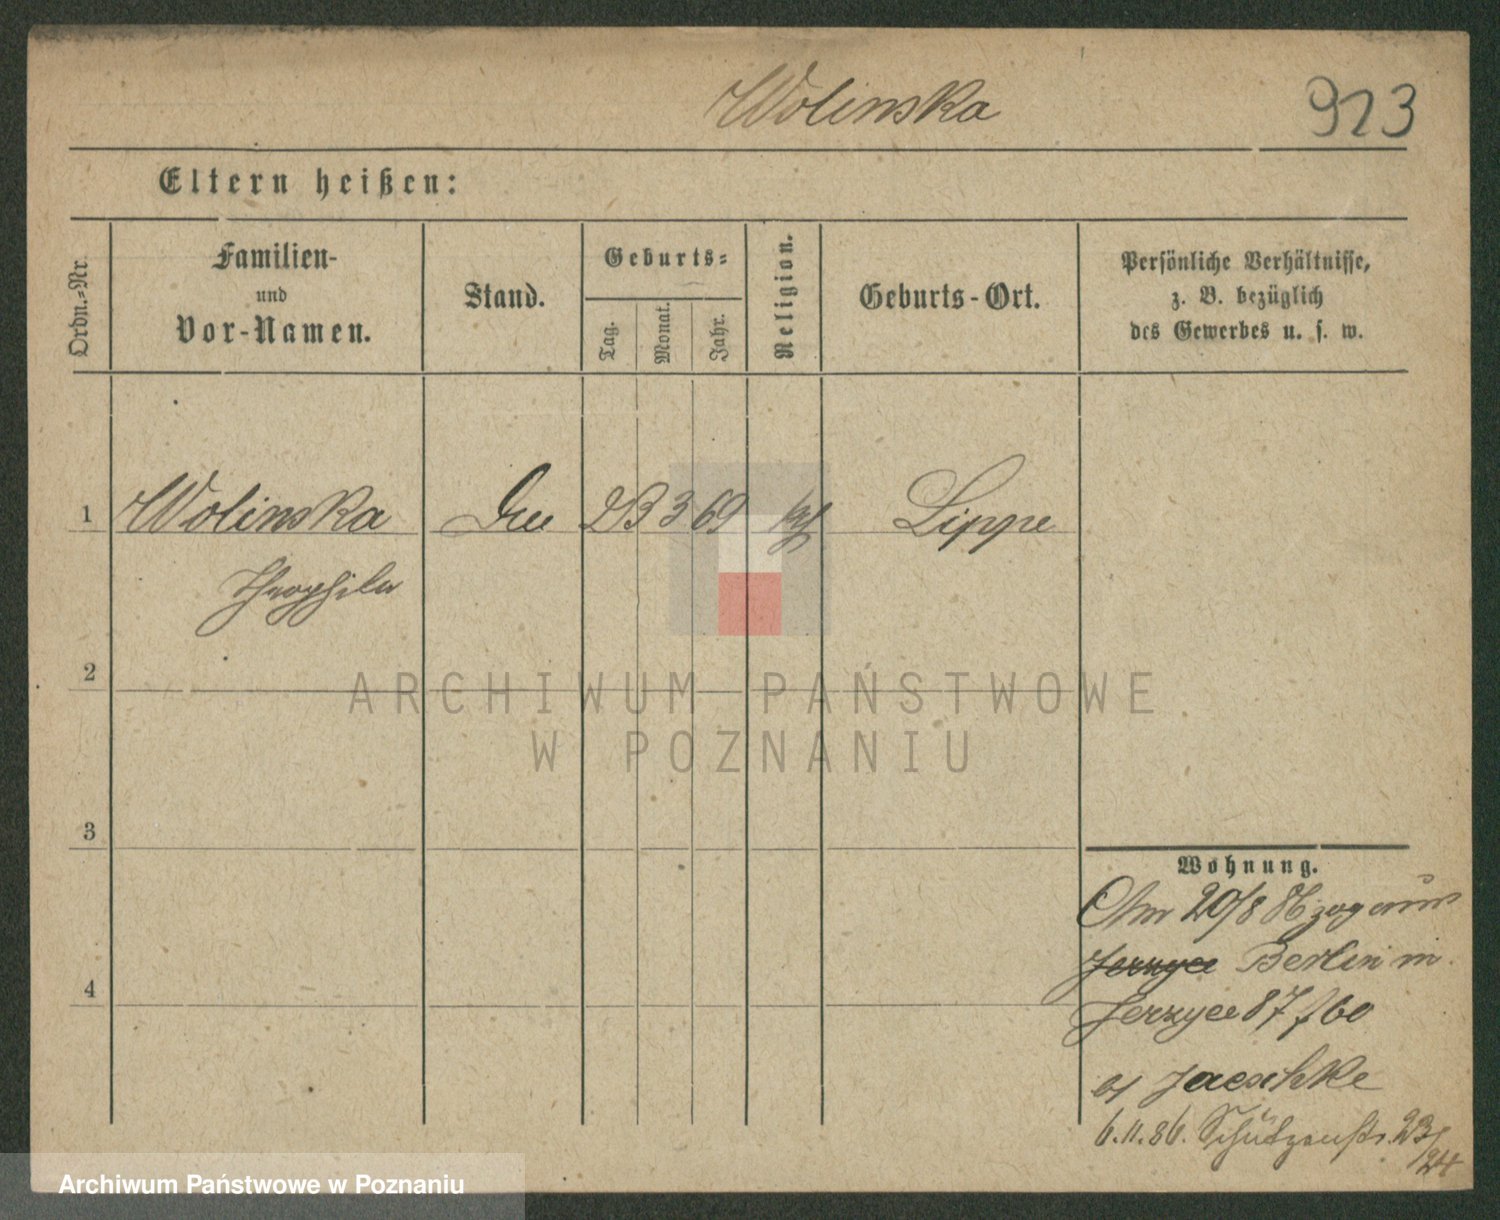 Wolinska
923
Eltern heißen:
Ordn.-Nr.
Familien-
und
Vor-Namen.
Stand.
Geburts-
Tag.
Monat.
Jahr.
Religion.
Geburts-Ort.
Persönliche Verhältnisse,
z. B. bezüglich
des Gewerbes u. s. w.
1 Wolinska 23 3 69 Lippe
Theophila
2
3
4
Wohnung.
Am 20/8 86 zog aus
Jerzyce Berlin in
Jerzyce 87 f 60
Jaeschke
6.11.86. Schützenstr. 23/
24
ARCHIWUM PAŃSTWOWE
W POZNANIU
Archiwum Państwowe w Poznaniu